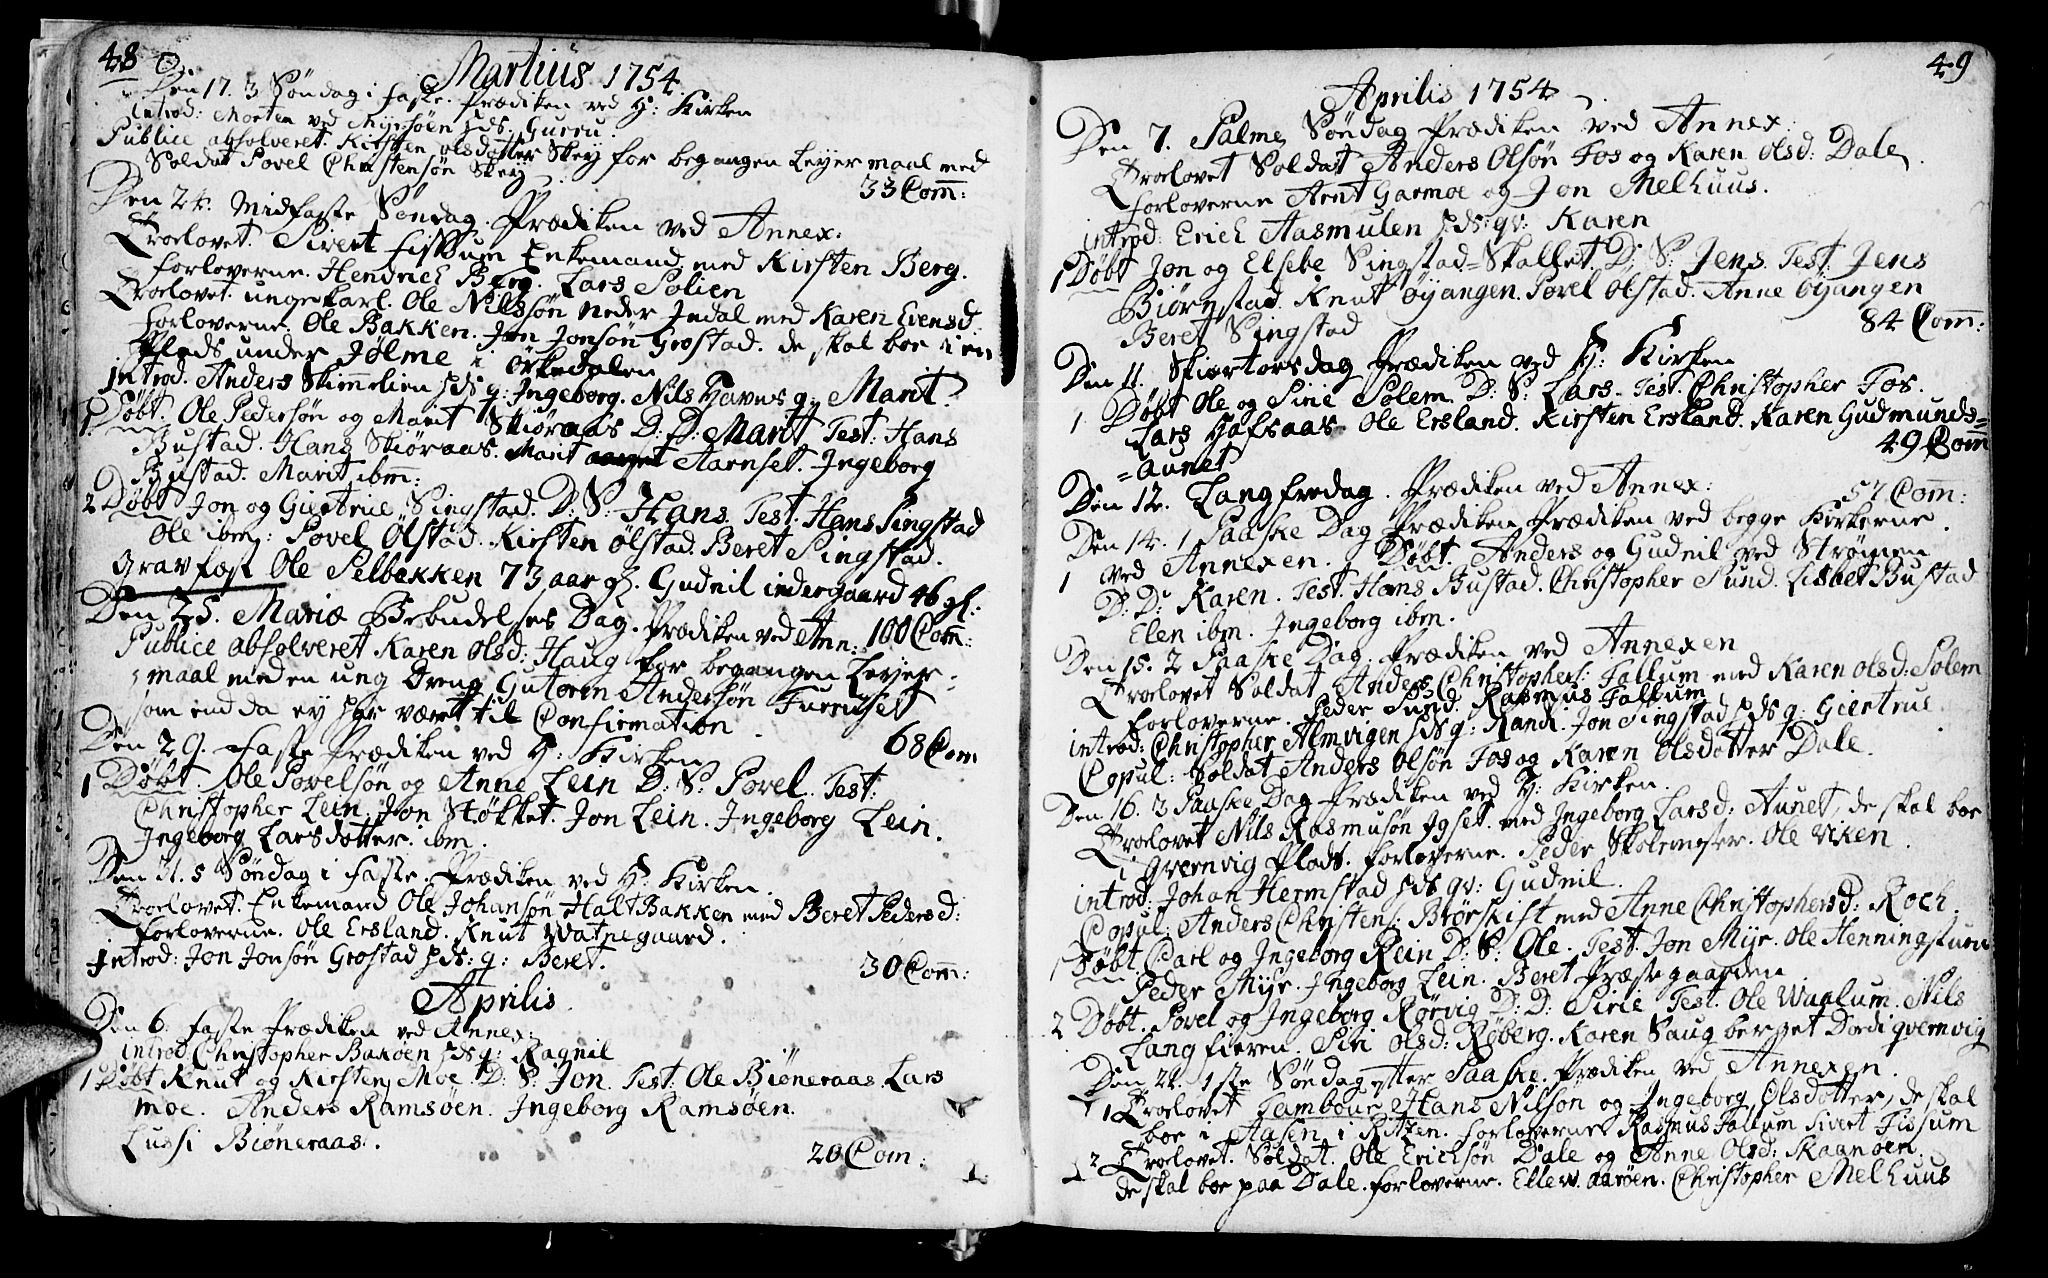 48
Martius 1754
Den 17. 3 Søndag i faste. Prædiken ved H: Kirken
Introd: Morten ved Myrsøen hds: Gurru.
Publice absolveret. Kirsten olsdotter Skey for begangen Leyermaal med
Soldat Povel Christensøn Skey
33 Com̄:
Den 24. Midfaste Søndag. Prædiken ved Annex:
Troelovet. Sivert Fissum Enkemand med Kirsten Berg.
forloverne. Hendrich Berg. Lars Solien
Troelovet ungekarl. Ole Nilssøn neder Indal med Karen Evensd.
forloverne. Ole Bakken. Jon Jonsøn Grostad. de skal boe i en
Plads under Jølme i Örkedalen
Introd. Anders Skimelien hds q: Ingeborg. Nils Havnes q: Marit.
1 Døbt. Ole Pedersøn og Marit Skiøraas D: D: Marit Test: Hans
Bustad. Hans Skiøraas. Marit Aarnset. Ingeborg
Bustad. Marit ibm̄:
2 Døbt Jon og Giertrue Singstad. D: S: Hans. Test. Hans Singstad
Ole ibm: Povel Ölstad. Kirsten Ølstad. Beret Singstad.
Gravfæst Ole Selbekken 73 aar gl. Gudnil indergaard 46 gl:
Den 25. Mariæ Bebudelses Dag. Prædiken ved Ann: 100 Com̄:
Publice absolveret Karen olsd: Haug for begangen Leyer-
maal med en ung Dreng Gutoren Andersøn Furruset
som end da ey har været til Confirmation
68 Com
Den 29. faste Prædiken ved H: Kirken
1 Døbt. Ole Povelsøn og Anne Lein D: S: Povel. Test:
Christopher Lein. Jon Støkket. Jon Lein. Ingeborg Lein.
Ingeborg Larsdotter. ibm.
Den 31. 5 Søndag i faste. Prædiken ved H: Kirken.
Troelovet. Enkemand Ole Johansøn Haltbakken med Beret Pedersd:
forloverne. Ole Ersland. Knut Watnegaard.
Introd: Jon Jonsøn Grostad hds: q: Beret.
30 Com̄:
Aprilis
Den 6. faste Prædiken ved Annex:
introd. Christopher Bakøen hds q: Ragnil
1 Døbt Knut og Kirsten Moe. D: S: Jon. Test: Ole Biøneraas Lars
moe. Anders Ramsøen. Ingeborg Ramsøen.
Lussi Biøneraas.
20 Com:
49
Aprilis 1754
Den 7. Palme Søndag Prædiken ved Annex:
Troelovet Soldat Anders Olsøn Fos og Karen Olsd: Dale.
forloverne Arnt Garmoe og Jon Melhuus.
introd: Erich Aasmulen hds: qv: Karen
1 Døbt Jon og Elsebe Singstad=Skallet. D: S: Jens Test: Jens
Biørnstad. Knut Öyangen. Povel Ølstad. Anne Öyangen
Beret Singstad
84 Com̄:
Den 11. Skiærtorsdag Prædiken ved H: Kirken
1 Døbt Ole og Sirie Solem. D: S: Lars. Test. Christopher Fos.
Lars Hafsaas. Ole Ersland. Kirsten Ersland. Karen Gudmunds=
=aunet
49 Com̄
Den 12. Langfredag. Prædiken ved Annex:
57 Com̄:
Den 14. 1 Paaske Dag Prædiken Prædiken ved begge Kirkerne.
1 ved Annexen. Døbt. Anders og Gudnil ved Strømen
D: D: Karen. Test. Hans Bustad. Christopher Sund. Lisbet Bustad
Elen ibm. Ingeborg ibm.
Den 15. 2 Paaske Dag. Prædiken ved Annexen
Troelovet Soldat Anders Christophers: Fallum med Karen olsd: Solem
forloverne. Peder Sund. Rasmus Fallum
introd: Christopher Almvigen hds q: Randi. Jon Singstad hds q. Giertrue
Copul: Soldat Anders Olsøn Fos og Karen Olsdotter Dale.
Den 16. 3 Paaske Dag Prædiken ved H: Kirken.
Troelovet Nils Rasmusøn Igset. med Ingeborg Larsd: Aunet, de skal boe
i Qvernvig Plads. forloverne. Peder Skolemester. Ole Viken.
introd: Johan Hermstad hds qv: Gudnil.
Copul: Anders Christens: Brørskift med Anne Christophersd: Roch.
1 Døbt. Carl og Ingeborg Rein D: S: Ole. Test. Jon Myr. Ole Henningstum
Peder Myr. Ingeborg Lein. Beret Præstegaarden
2 Døbt. Povel og Ingeborg Rørvig. D: D: Sirie Test. Ole Waalum. Nils
Langfieren. Siri Olsd: Røberg. Karen Haugberget Dordi qvernvig
Den 21. 1ste Søndag efter Paaske. Prædiken ved Annexen.
1 Troelovet Tambour Hans Nilsøn og Ingeborg Olsdotter, de skal
boe i Aasen i Ritzen. forloverne Rasmus Fallum Sivert Fissum
2 Troelovet. Soldat. Ole Erichsøn Dale og Anne Olsd: Skaanøen.
de skal boe paa Dale. forloverne. Ellev. aarøen. Christopher Melhuus